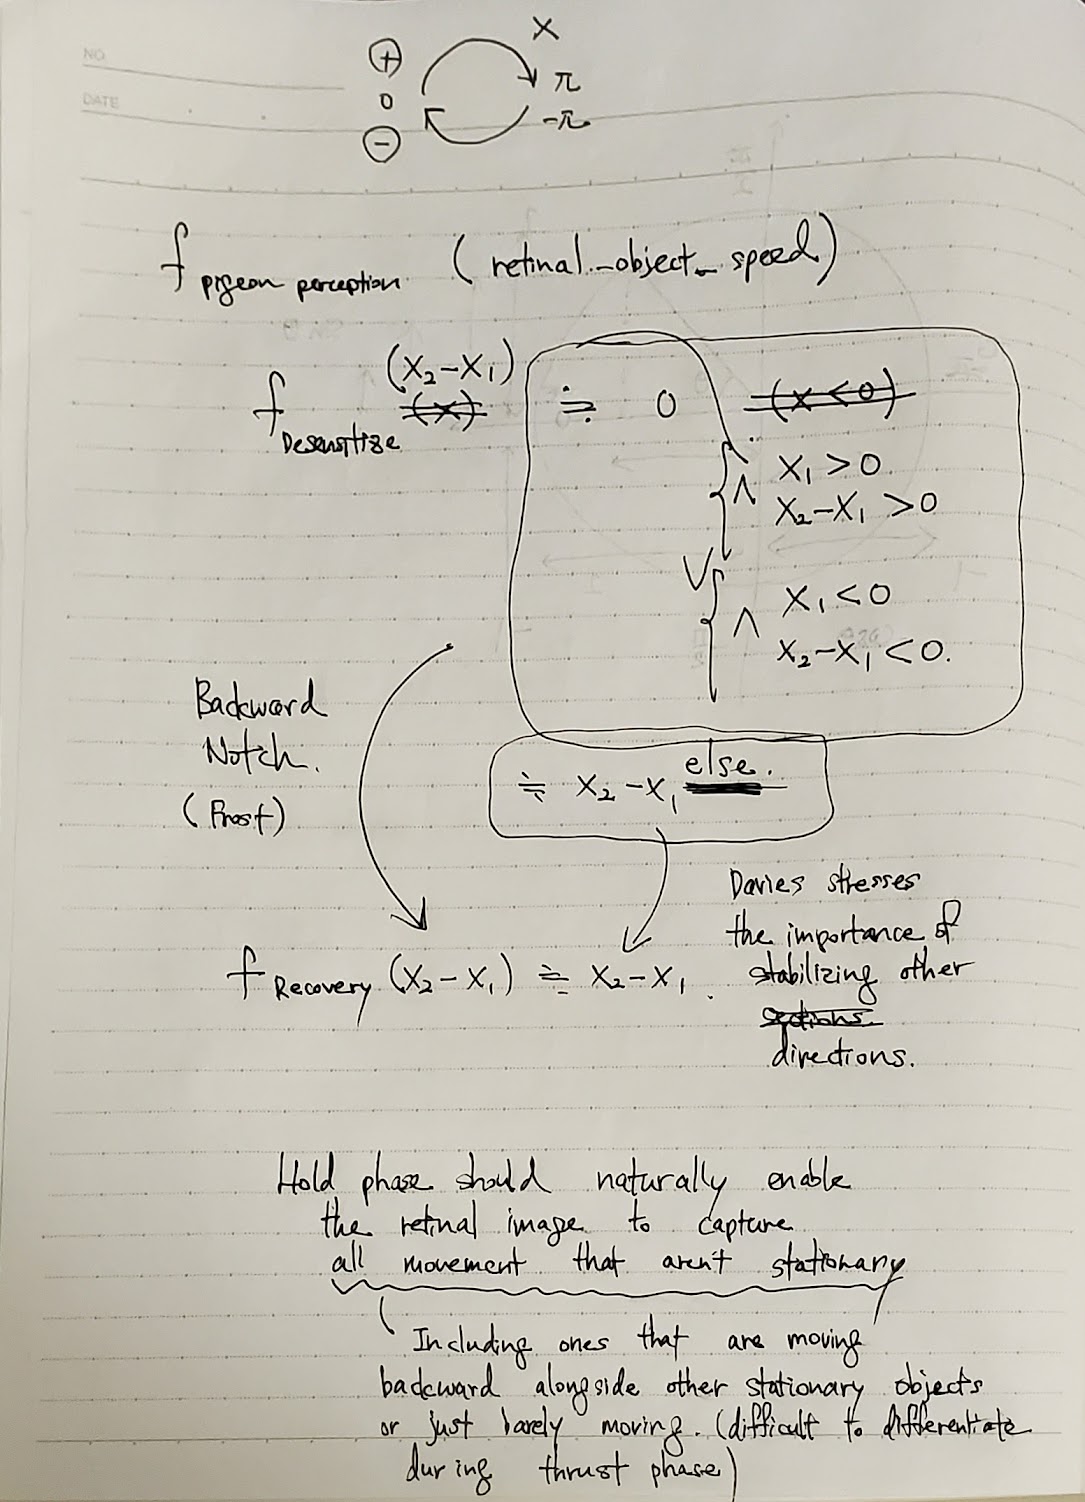 NO.
DATE
X
⊕
0
⊖
π
-π
f pigeon perception (retinal_object_speed)
(X₂-X₁)
f Desensitize (x) ≒ 0 (x<0)
∧ X₁>0
X₂-X₁>0
∨
∧ X₁<0
X₂-X₁<0.
Backward
Notch.
(Frost)
≒ X₂-X₁ else.
f Recovery (X₂-X₁) ≒ X₂-X₁.
Davies stresses
the importance of
stabilizing other
directions.
Hold phase should naturally enable
the retinal image to capture
all movement that aren't stationary
Including ones that are moving
backward alongside other stationary objects
or just barely moving. (difficult to differentiate
during thrust phase)